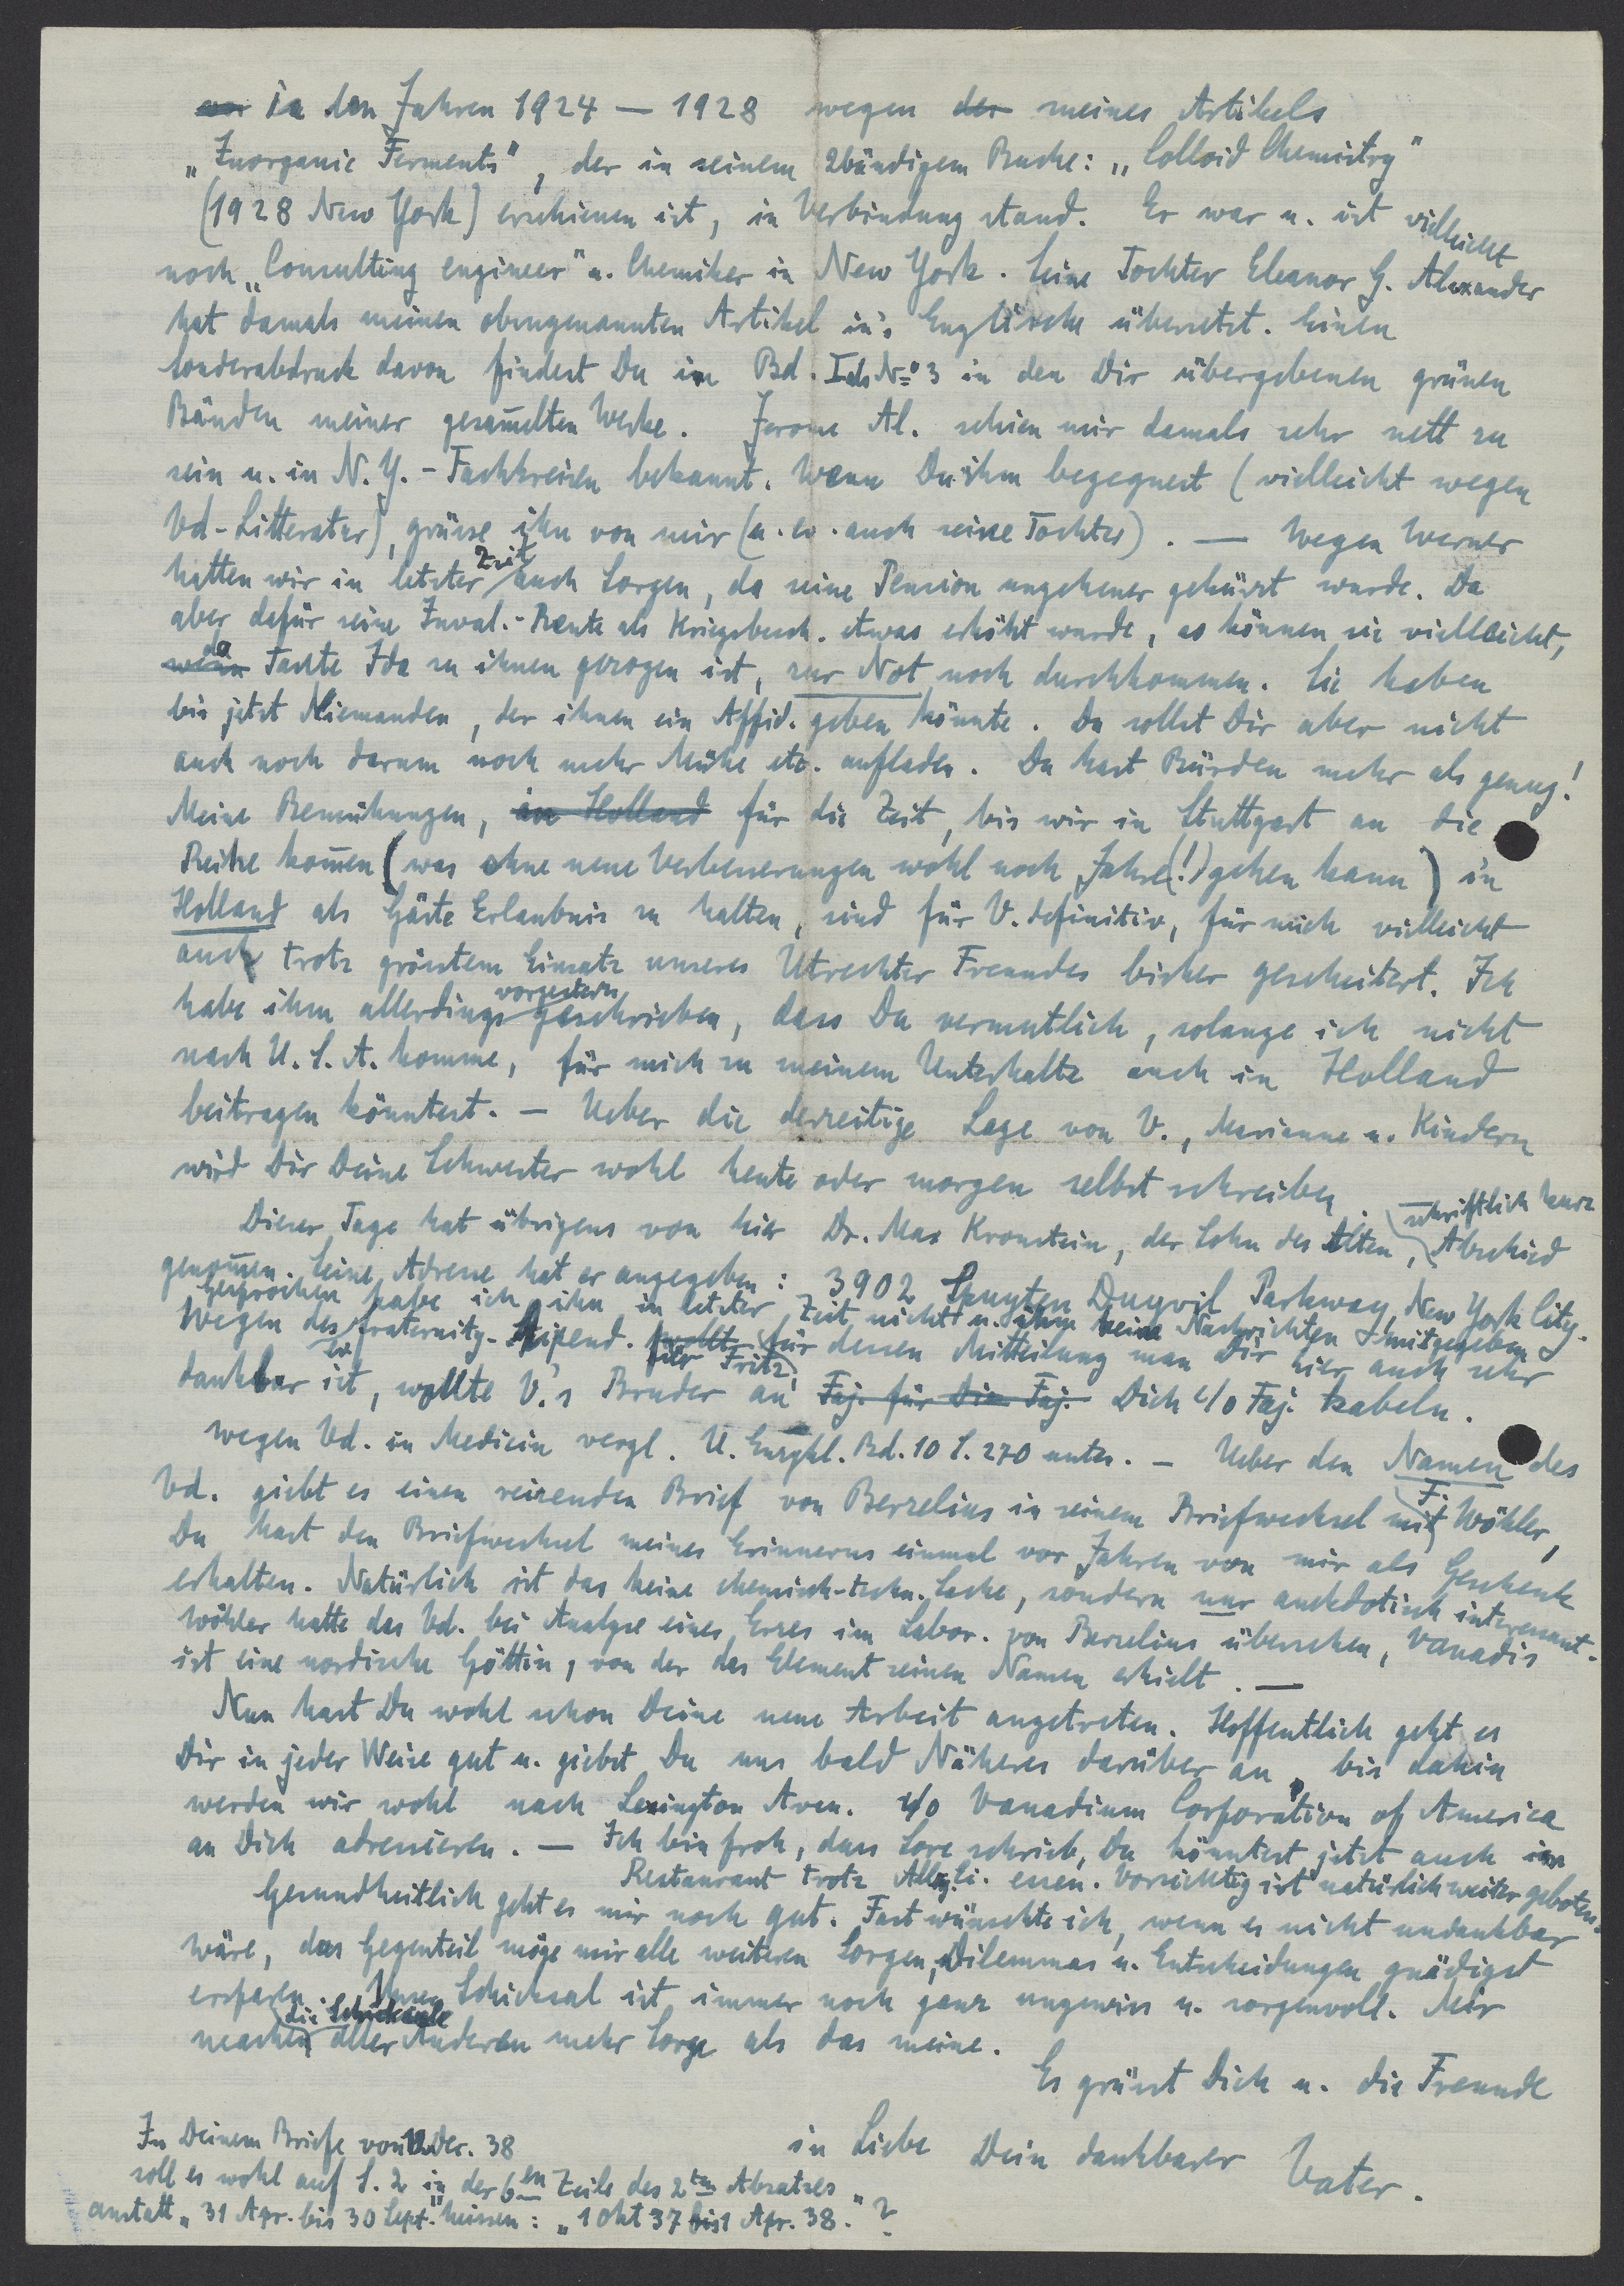 vor in den Jahren 1924 — 1928 wegen der meines Artikels
„Inorganic Ferments", der in seinem 2bändigem Buche: „Colloid Chemistry"
(1928 New York) erschienen ist, in Verbindung stand. Er war u. ist vielleicht
noch „Consulting engineer" u. Chemiker in New York. Seine Tochter Eleanor G. Alexander
hat damals meinen obengenannten Artikel in's Englische übersetzt. Einen
Sonderabdruck davon findest Du im Bd. I als No 3 in den Dir übergebenen grünen
Bänden meiner gesam̅elten Werke. Jerome Al. schien mir damals sehr nett zu
sein u. in N.Y.-Fachkreisen bekannt. Wenn Du ihm begegnest (vielleicht wegen
Vd-Litteratur), grüsse ihn von mir (u. ev. auch seine Tochter). — Wegen Werner
hatten wir in letzter Zeit auch Sorgen, da seine Pension ungeheuer gekürzt wurde. Da
aber dafür seine Inval.-Rente als Kriegsbesch. etwas erhöht wurde, so können sie vielleicht,
wenn da Tante Ida zu ihnen gezogen ist, zur Not noch durchkommen. Sie haben
bis jetzt Niemanden, der ihnen ein Affid. geben könnte. Du sollst Dir aber nicht
auch noch darum noch mehr Mühe etc. aufladen. Du hast Bürden mehr als genug!
Meine Bemühungen, in Holland für die Zeit, bis wir in Stuttgart an die
Reihe kom̅en (was ohne neue Verbesserungen wohl noch Jahre(!) gehen kann) in
Holland als Gäste Erlaubnis zu halten, sind für V. definitiv, für mich vielleicht
auch trotz grösstem Einsatz unseres Utrechter Freundes bisher gescheitert. Ich
habe ihm allerdings vorgestern geschrieben, dass Du vermutlich, solange ich nicht
nach U.S.A. komme, für mich zu meinem Unterhalte auch in Holland
beitragen könntest. — Ueber die derzeitige Lage von V., Marianne u. Kindern
wird Dir Deine Schwester wohl heute oder morgen selbst schreiben.
Dieser Tage hat übrigens von hier Dr. Max Kronstein, der Sohn des Alten, schriftlich kurz Abschied
genom̅en. Seine Adresse hat er angegeben: 3902 Spuyten Duyvil Parkway, New York City.
Gesprochen habe ich ihn in letzter Zeit nicht u. ihm keine Nachrichten mitgegeben.
Wegen des fraternity-Stipend. wollte für dessen Mitteilung man Dir hier auch sehr
dankbar ist, wollte V.'s Bruder Fritz an Faj. für Die Faj. Dich c/o Faj. kabeln.
wegen Vd. in Medicin vergl. U. Enzykl. Bd. 10 S. 270 unten. — Ueber den Namen des
Vd. giebt es einen reizenden Brief von Berzelius in seinem Briefwechsel mit F. Wöhler,
Du hast den Briefwechsel meines Erinnerns einmal vor Jahren von mir als Geschenk
erhalten. Natürlich ist das keine chemisch-techn. Sache, sondern nur anekdotisch interessant.
Wöhler hatte das Vd. bei Analyse eines Erzes im Labor. von Berzelius übersehen, Vanadis
ist eine nordische Göttin, von der das Element seinen Namen erhielt. —
Nun hast Du wohl schon Deine neue Arbeit angetreten. Hoffentlich geht es
Dir in jeder Weise gut u. giebst Du uns bald Näheres darüber an, bis dahin
werden wir wohl nach Lexington Aven. c/o Vanadium Corporation of America
an Dich adressieren. — Ich bin froh, dass Lore schrieb, Du könntest jetzt auch im
Restaurant trotz essen. Vorsichtig ist natürlich weiter geboten.
Gesundheitlich geht es mir noch gut. Fast wünschte ich, wenn es nicht undankbar
wäre, das Gegenteil möge mir alle weiteren Sorgen, Dilemmas u. Entscheidungen gnädigst
ersparen. Unser Schicksal ist immer noch ganz ungewiss u. sorgenvoll. Mir
machen die Schicksale aller Anderen mehr Sorge als das meine.
Es grüsst Dich u. die Freunde
in Liebe Dein dankbarer Vater.
In Deinem Briefe von Dez. 38
soll es wohl auf S. 2 in der 6en Zeile des 2ten Absatzes
anstatt „31 Apr. bis 30 Sept." heissen: „1 Okt 37 bis 1 Apr. 38."?